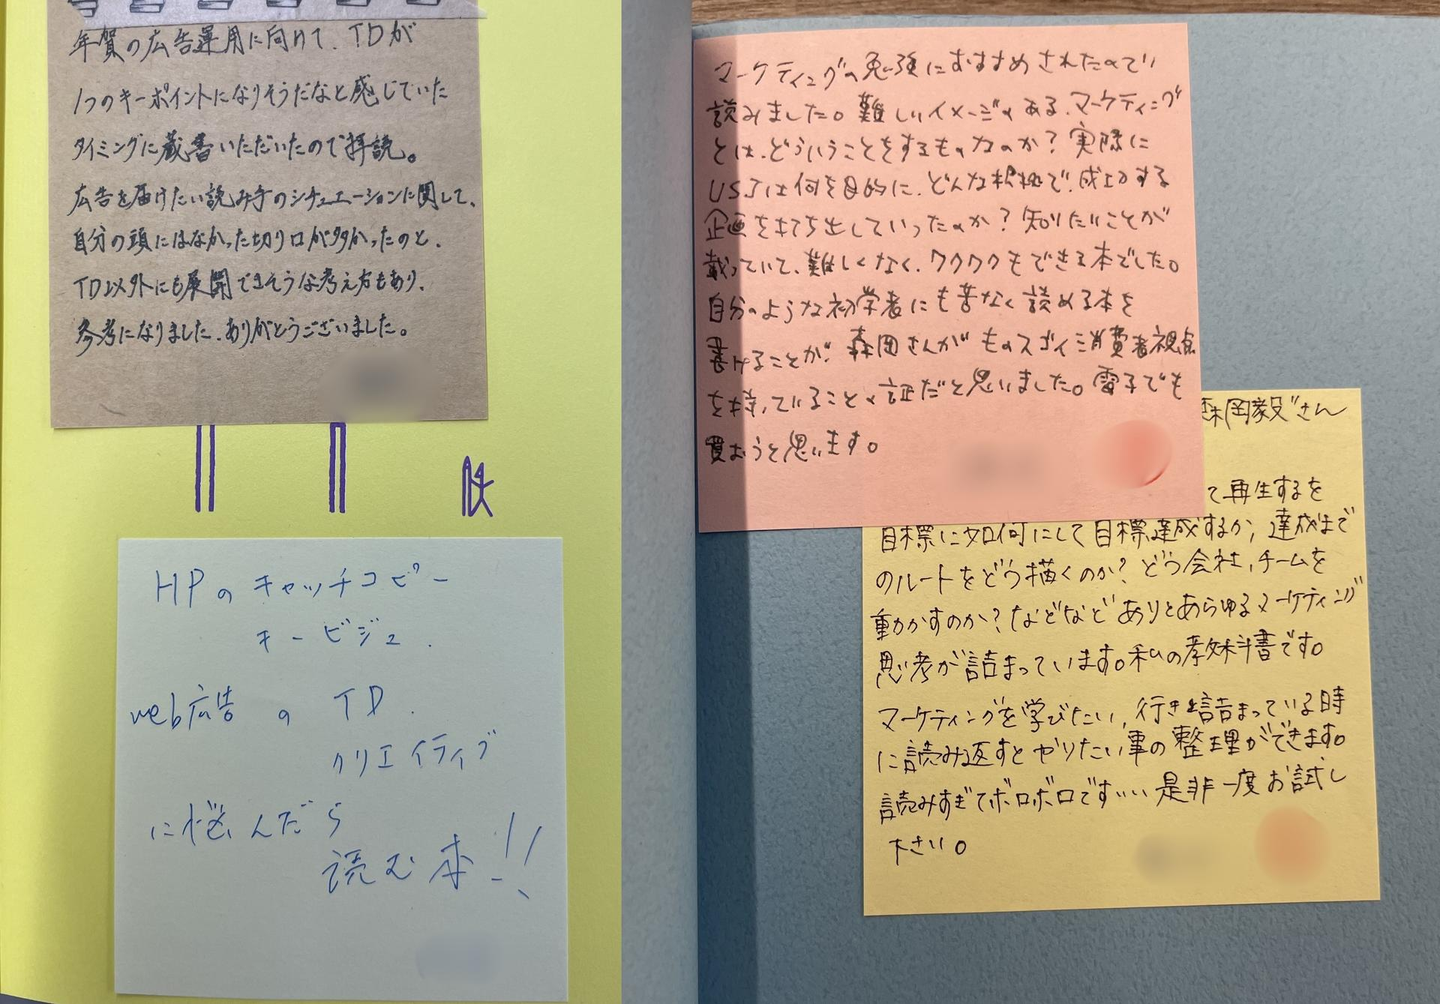 年賀の広告運用に向けて、TDが
1つのキーポイントになりそうだなと感じていた
タイミングに蔵書いただいたので拝読。
広告を届けたい読み手のシチュエーションに関して、
自分の頭にはなかった切り口が多かったのと、
TD以外にも展開できそうな考え方もあり、
参考になりました。ありがとうございました。
HPのキャッチコピー
キービジュ.
web広告のTD.
クリエイティブ
に悩んだら
読む本!!
マーケティングの勉強におすすめされたので
読みました。難しいイメージのある、マーケティング
とは、どういうことをするものなのか?実際に
USJは何を目的に、どんな根拠で、成功する
企画を打ち出していったのか?知りたいことが
載っていて、難しくなく、ワクワクもできる本でした。
自分のような初学者にも苦なく読める本を
書けることが、森岡さんがものスゴイ消費者視点
を持っていることの証だと思いました。電子でも
買おうと思います。
森岡毅さん
て再生するを
目標に如何にして目標達成するか、達成まで
のルートをどう描くのか?どう会社、チームを
動かすのか?などなどありとあらゆるマーケティング
思考が詰まっています。私の教科書です。
マーケティングを学びたい、行き詰まっている時
に読み返すとやりたい事の整理ができます。
読みすぎてボロボロですいい是非一度お試し
下さい。